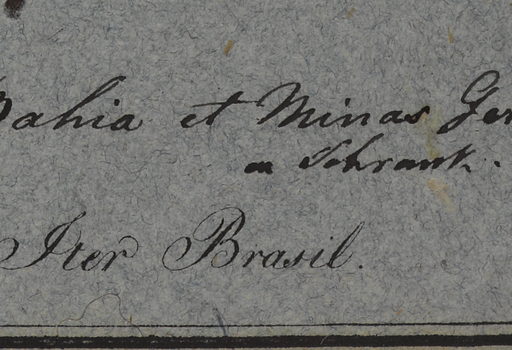 Bahia et Minas Ger
Schrank.
Iter Brasil.